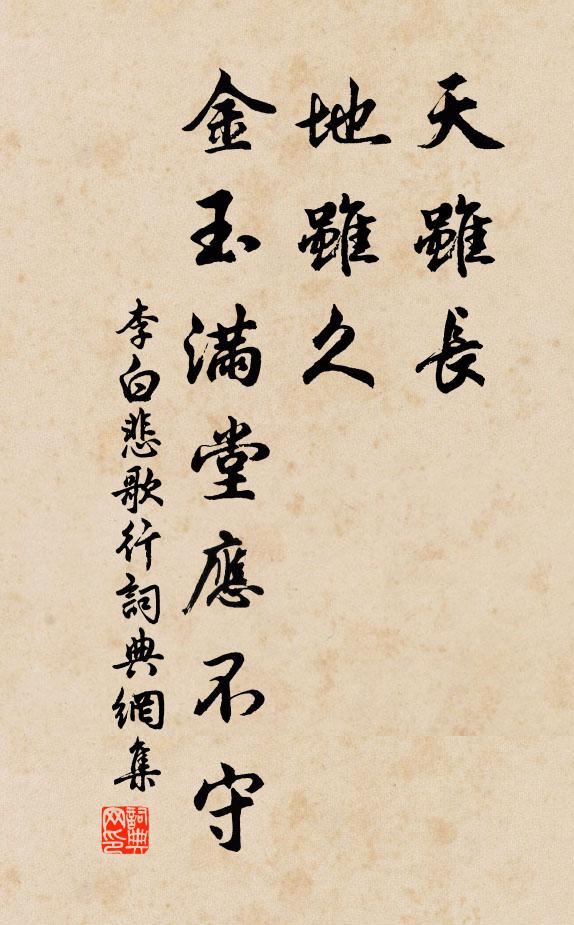 天雖長
地雖久
金玉滿堂應不守
李白悲歌行詞典網集
詞典
网印